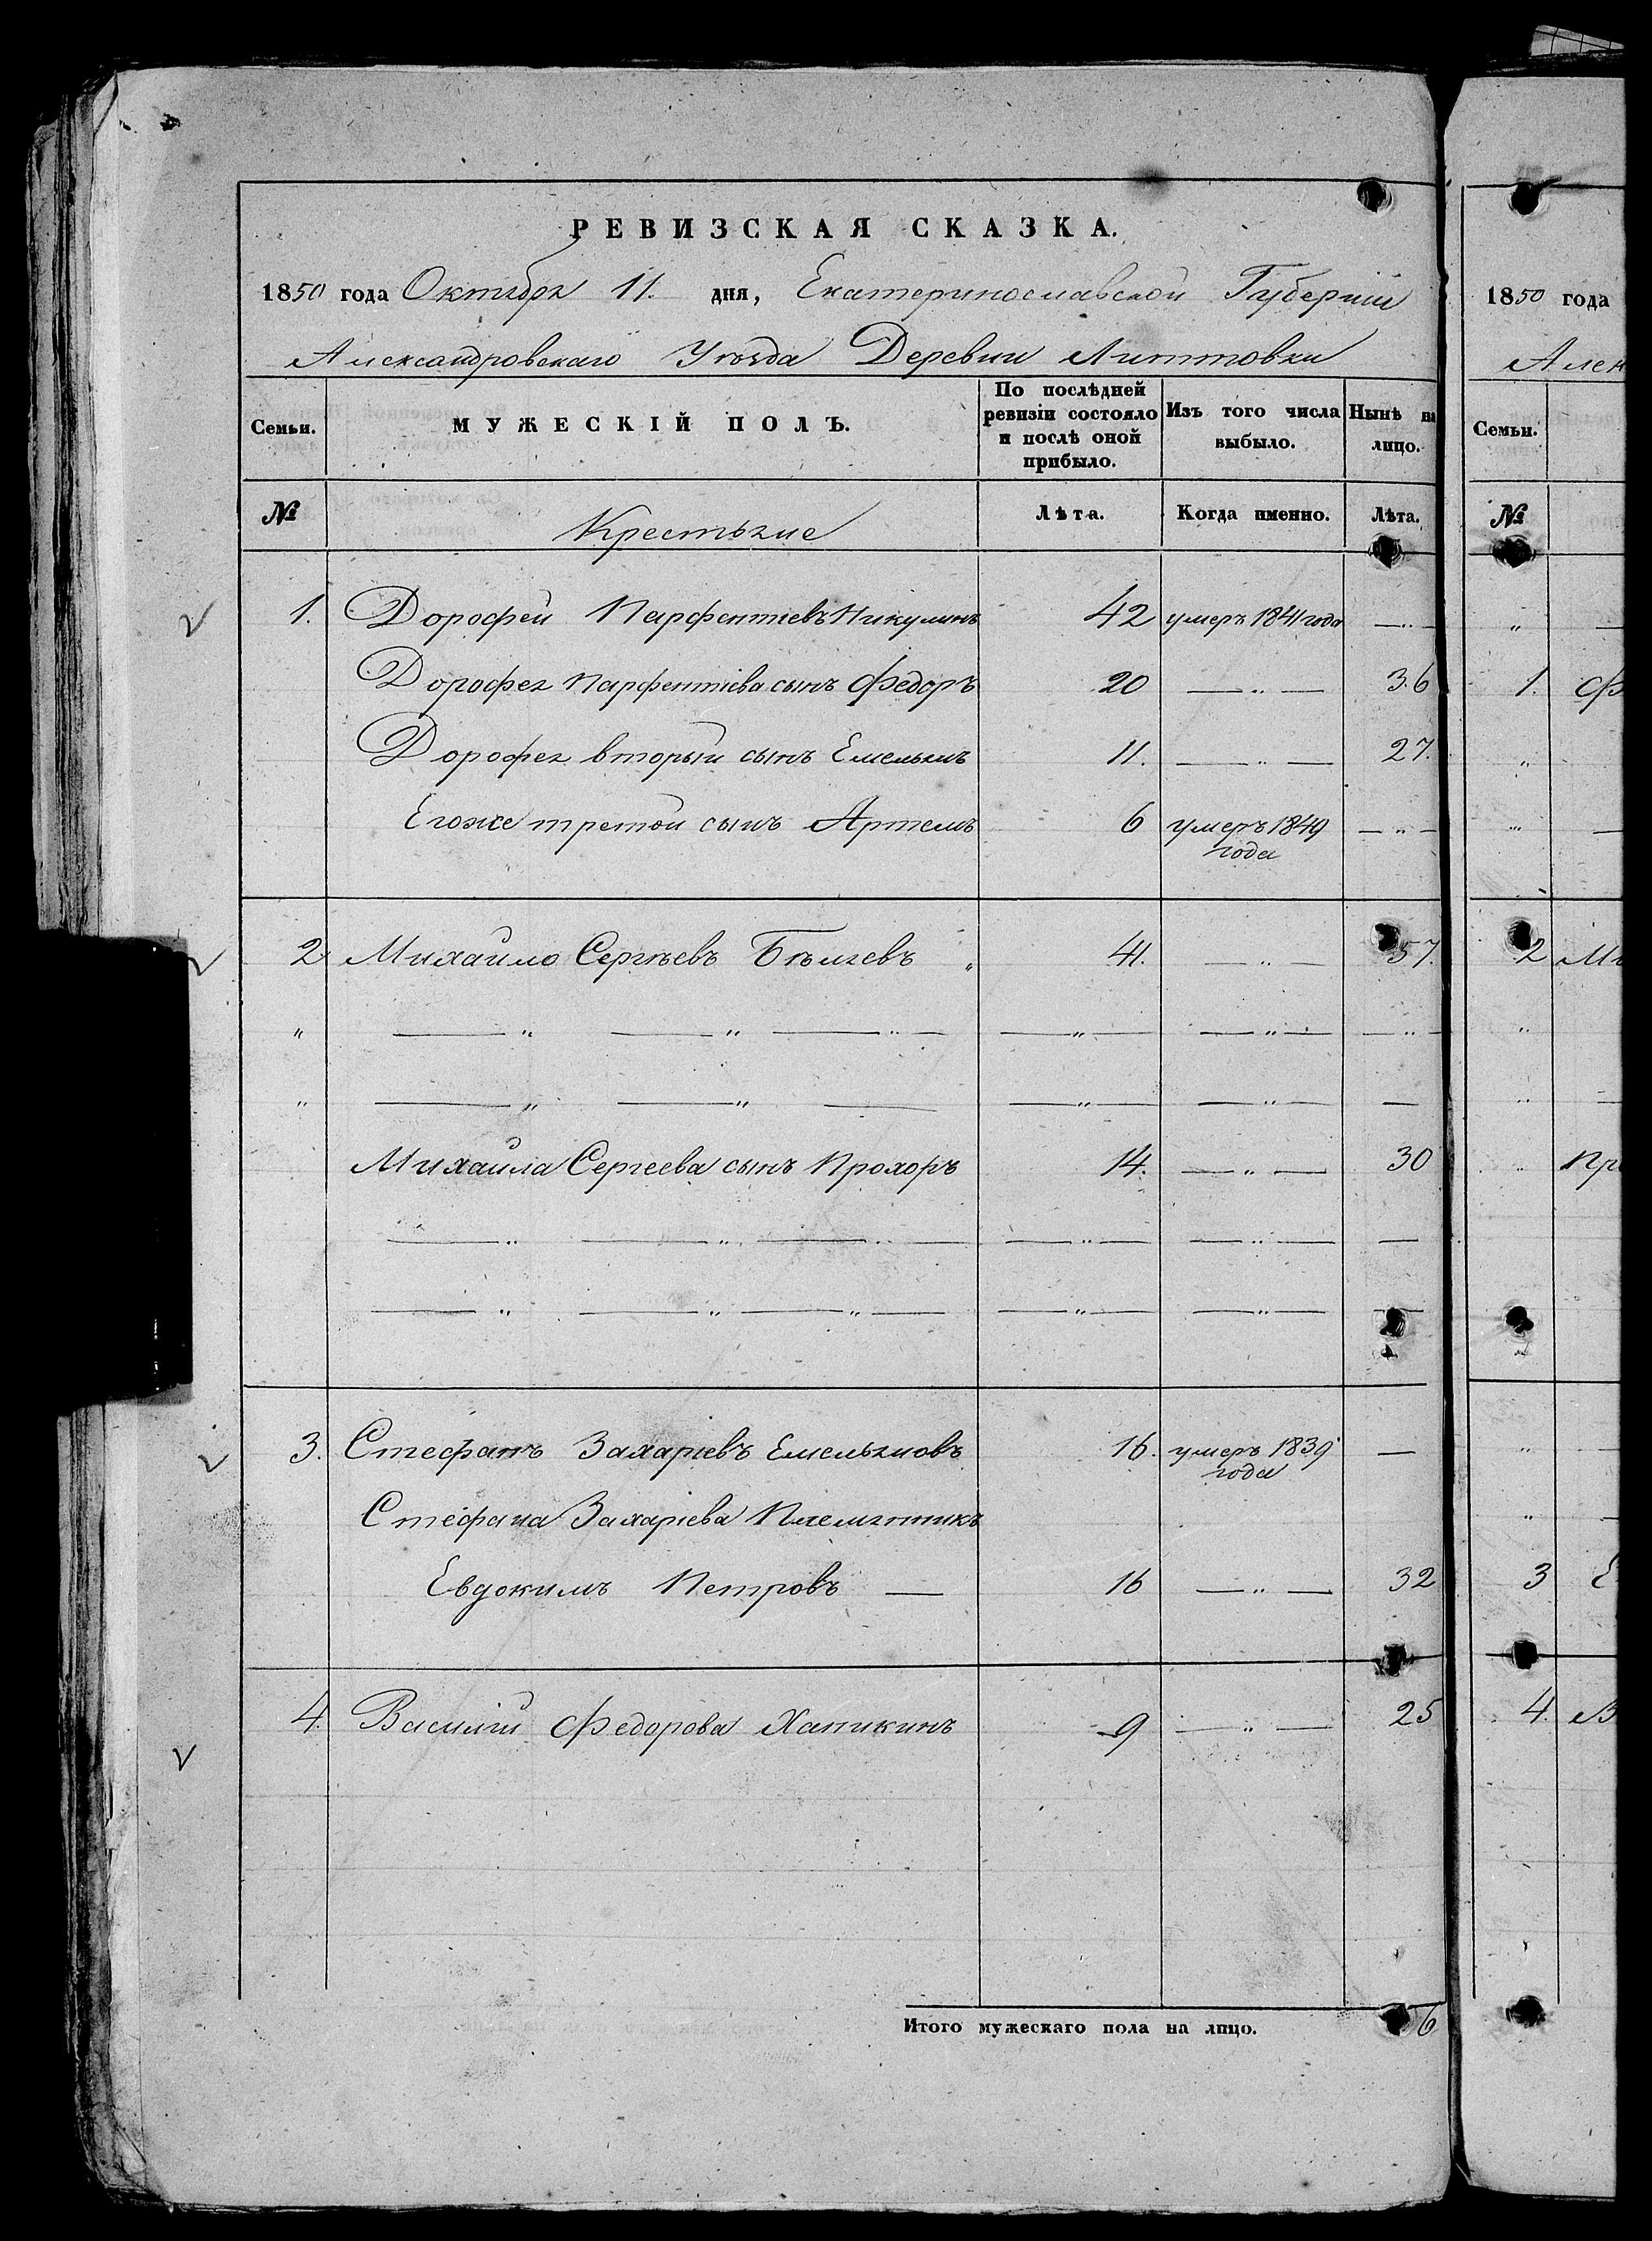 РЕВИЗСКАЯ СКАЗКА.
1850 года Октября 11. дня, Екатеринославской Губерніи
Александровскаго Уѣзда Деревни Липтовки
Семьи. МУЖЕСКІЙ ПОЛЪ. По послѣдней ревизіи состояло и послѣ оной прибыло. Изъ того числа выбыло. Нынѣ на лицо.
№ Крестьяне Лѣта. Когда именно. Лѣта.
1. Дорофей Парфентіевъ Никулинъ 42 умеръ 1841 года — „ —
Дорофея Парфентіева сынъ Федоръ 20 — „ — 36
Дорофея вторый сынъ Емельянъ 11. — „ — 27.
Егоже третой сынъ Артемъ 6 умеръ 1849 года — „ —
2 Михайло Сергѣевъ Бѣляевъ „ 41. — „ — 57.
„ — „ — „ — „ — — „ — — „ — — „ —
„ — „ — „ — — „ — — „ — —
Михайла Сергеева сынъ Прохоръ 14. — „ — 30
— „ — „ — „ — — „ — — „ — —
— „ — „ — „ — — „ — — „ — —
3. Стефанъ Захаріевъ Емельяновъ 16. умеръ 1839 года —
Стефана Захаріева Племянникъ
Евдокимъ Петровъ — 16 — „ — 32
4. Василій Федорова Хапикинъ 9 — „ — 25
Итого мужескаго пола на лицо. 6
1850 года
Алек
Семьи.
№
„ —
1. Ф
„
„ —
2 Ми
„
„ —
„ Пр
„ —
„ —
3 Е
4. В